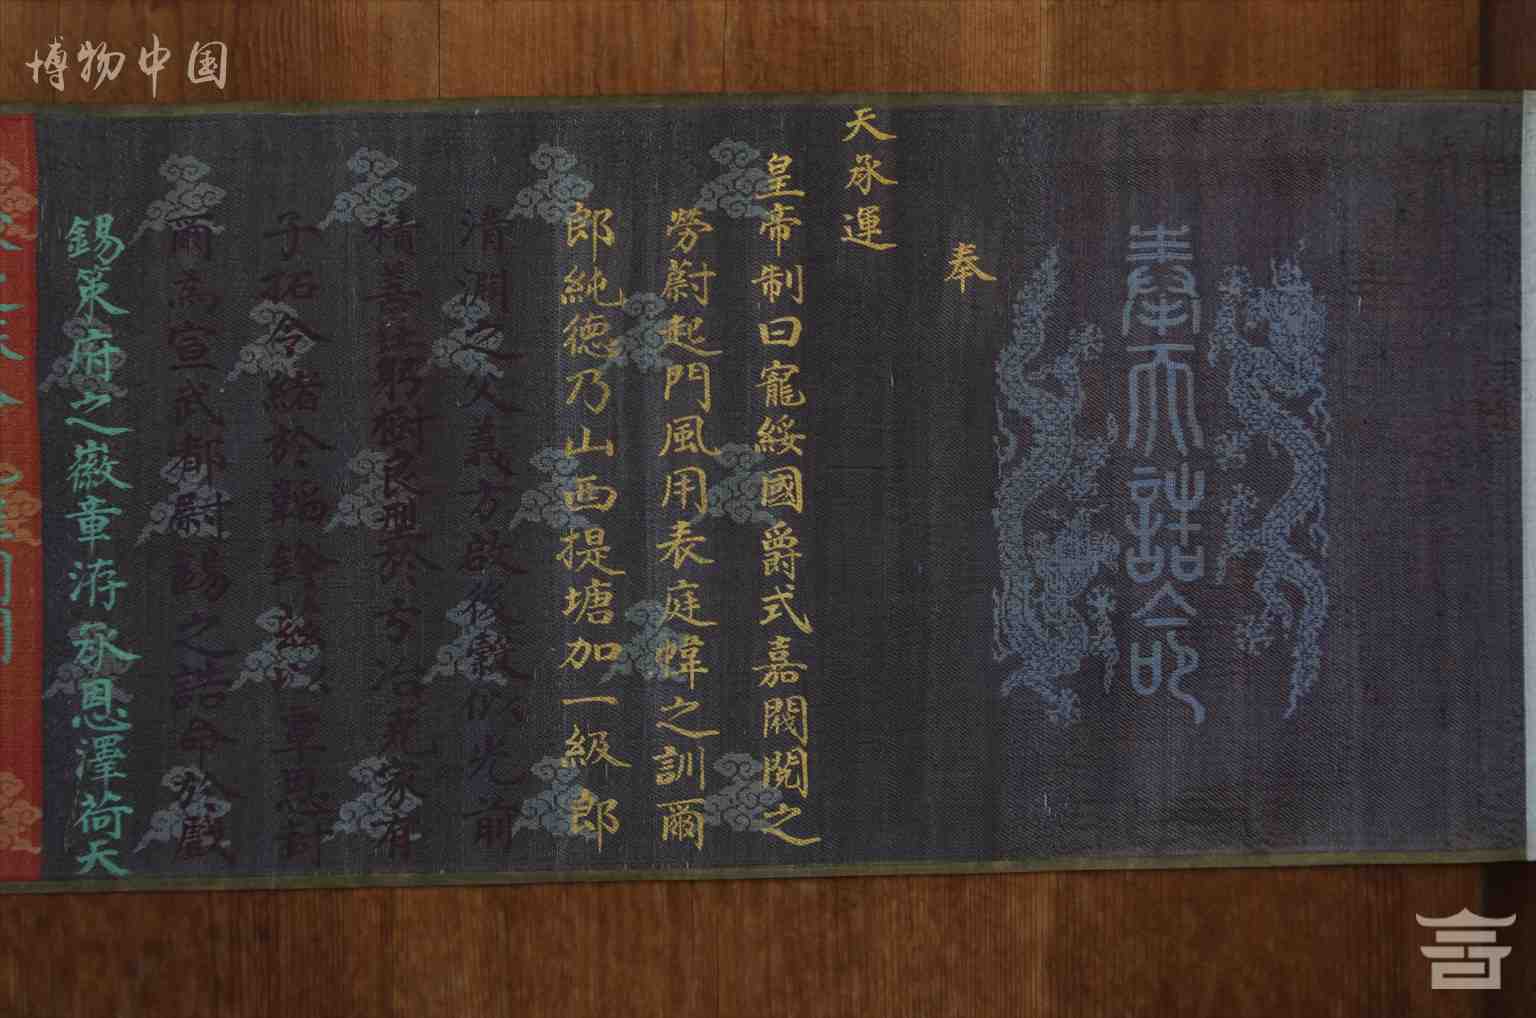 博物中国
奉天誥命
奉
天承運
皇帝制曰寵綏國爵式嘉閥閱之
勞蔚起門風用表庭幃之訓爾
郎純德乃山西提塘加一級郎
清淵之父義方啟後穀似光前
積善在躬樹良型於弓冶克家有
子拓令緒於韜鈐茲以覃恩封
爾為宣武都尉錫之誥命於戲
錫策府之徽章洊承恩澤荷天